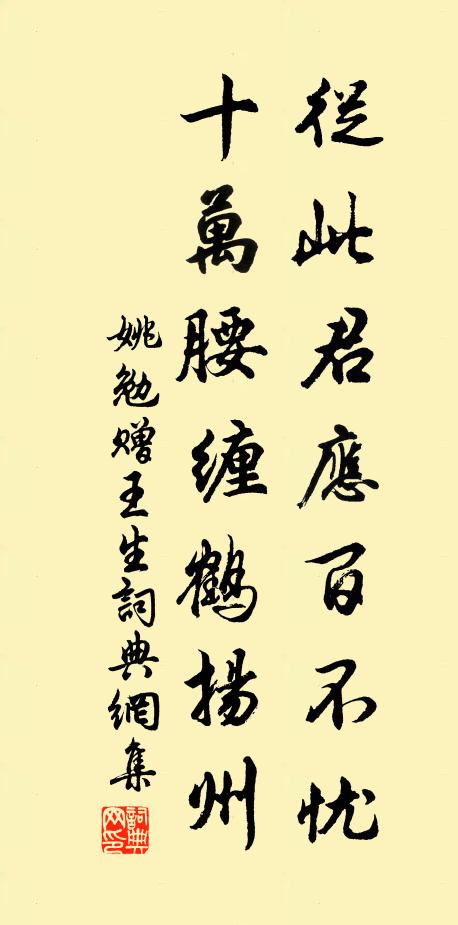 從此君應百不忧
十萬腰纏鶴揚州
姚勉赠王生詞典網集
詞典网印